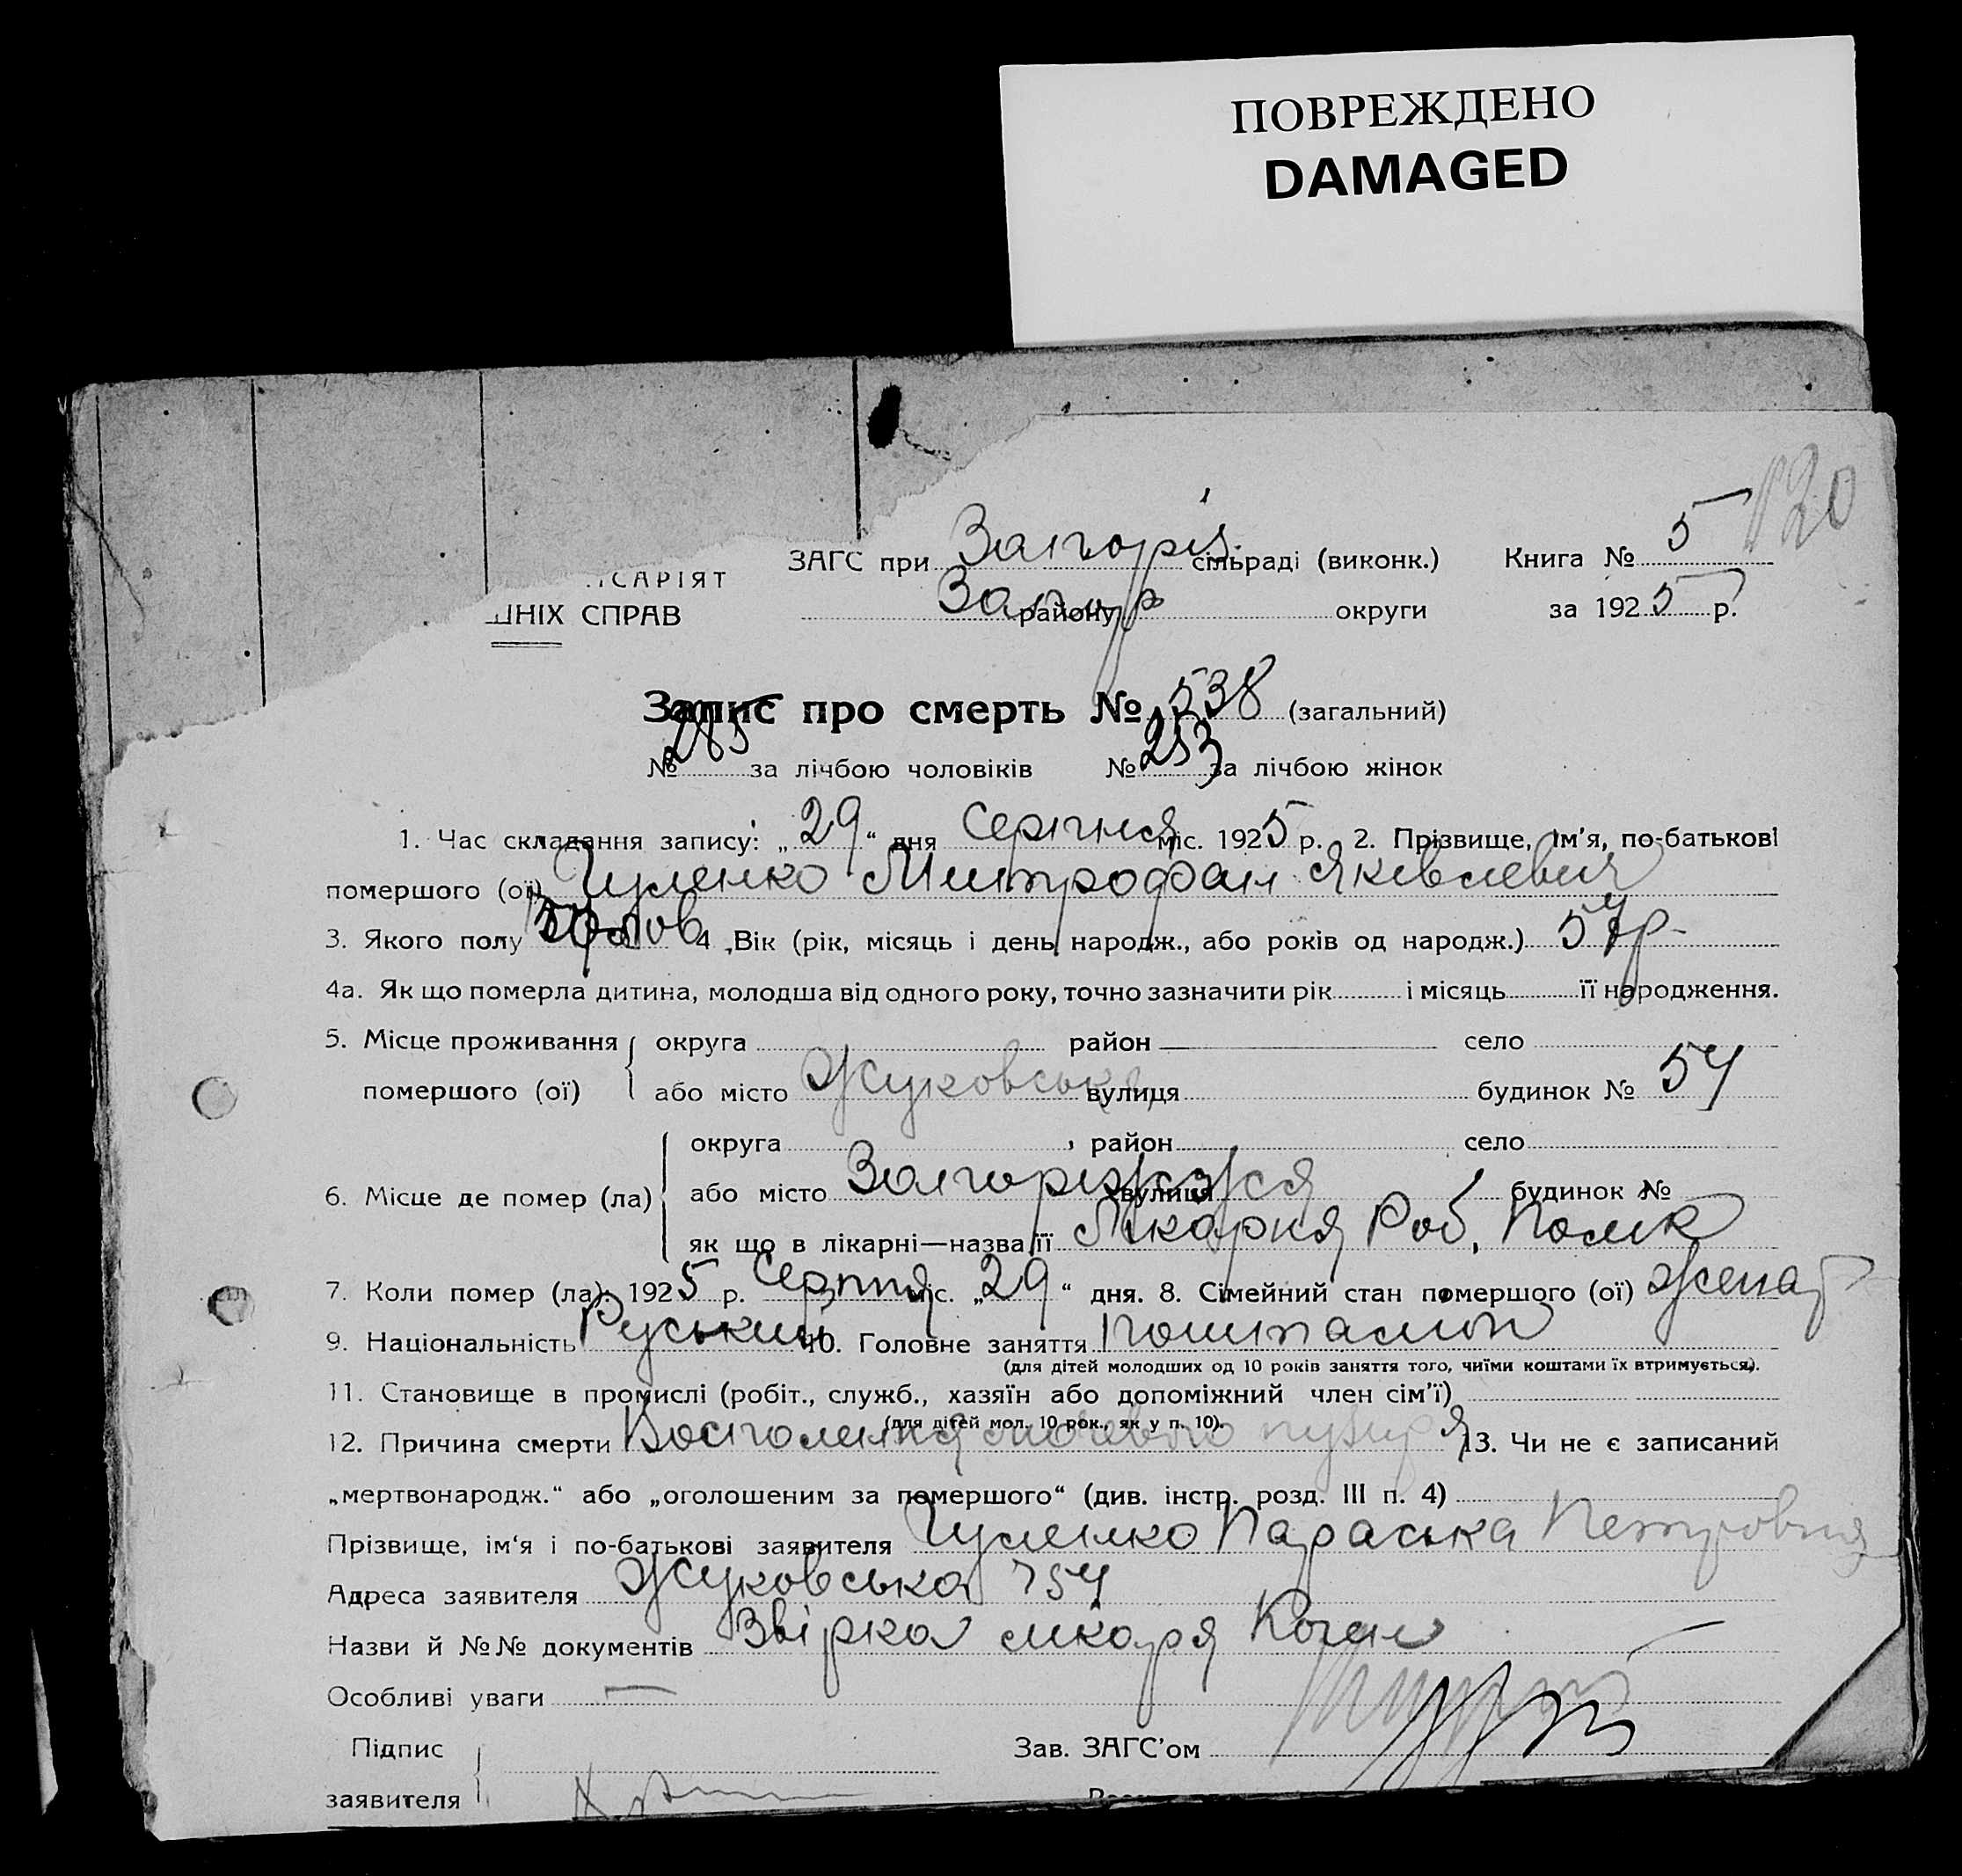 ПОВРЕЖДЕНО
DAMAGED
120
ЗАГС при Запоріз. сільраді (виконк.) Книга № 5
САРІЯТ
ШНІХ СПРАВ району Запор округи за 1925 р.
Запис про смерть № 538 (загальний)
№ 285 за лічбою чоловіків № 253 за лічбою жінок
1. Час складання запису: „29“ дня Серпня міс. 1925 р. 2. Прізвище, ім'я, по-батькові
помершого (ої) Гуленко Митрофан Яківлевич
3. Якого полу 4 Вік (рік, місяць і день народж., або років од народж.) 57р.
4а. Як що померла дитина, молодша від одного року, точно зазначити рік і місяць її народження.
5. Місце проживання округа район село
помершого (ої) або місто Жуковська вулиця будинок № 54
округа район село
6. Місце де помер (ла) або місто Запоріжжя вулиця будинок №
як що в лікарні—назва її Лікарня Роб. Полік
7. Коли помер (ла): 1925 р. Серпня міс. „29“ дня. 8. Сімейний стан помершого (ої) Женат
9. Національність Руський 10. Головне заняття
(для дітей молодших од 10 років заняття того, чиїми коштами їх втримується).
11. Становище в промислі (робіт., служб., хазяїн або допоміжний член сім'ї)
(для дітей мол. 10 рок., як у п. 10).
12. Причина смерти Восполення мочевого пузиря 13. Чи не є записаний
„мертвонародж.“ або „оголошеним за помершого“ (див. інстр. розд. III п. 4)
Прізвище, ім'я і по-батькові заявителя Гуленко Параська Петровна
Адреса заявителя Жуковська 54
Назви й №№ документів лікаря Коген
Особливі уваги —
Підпис Зав. ЗАГС'ом
заявителя